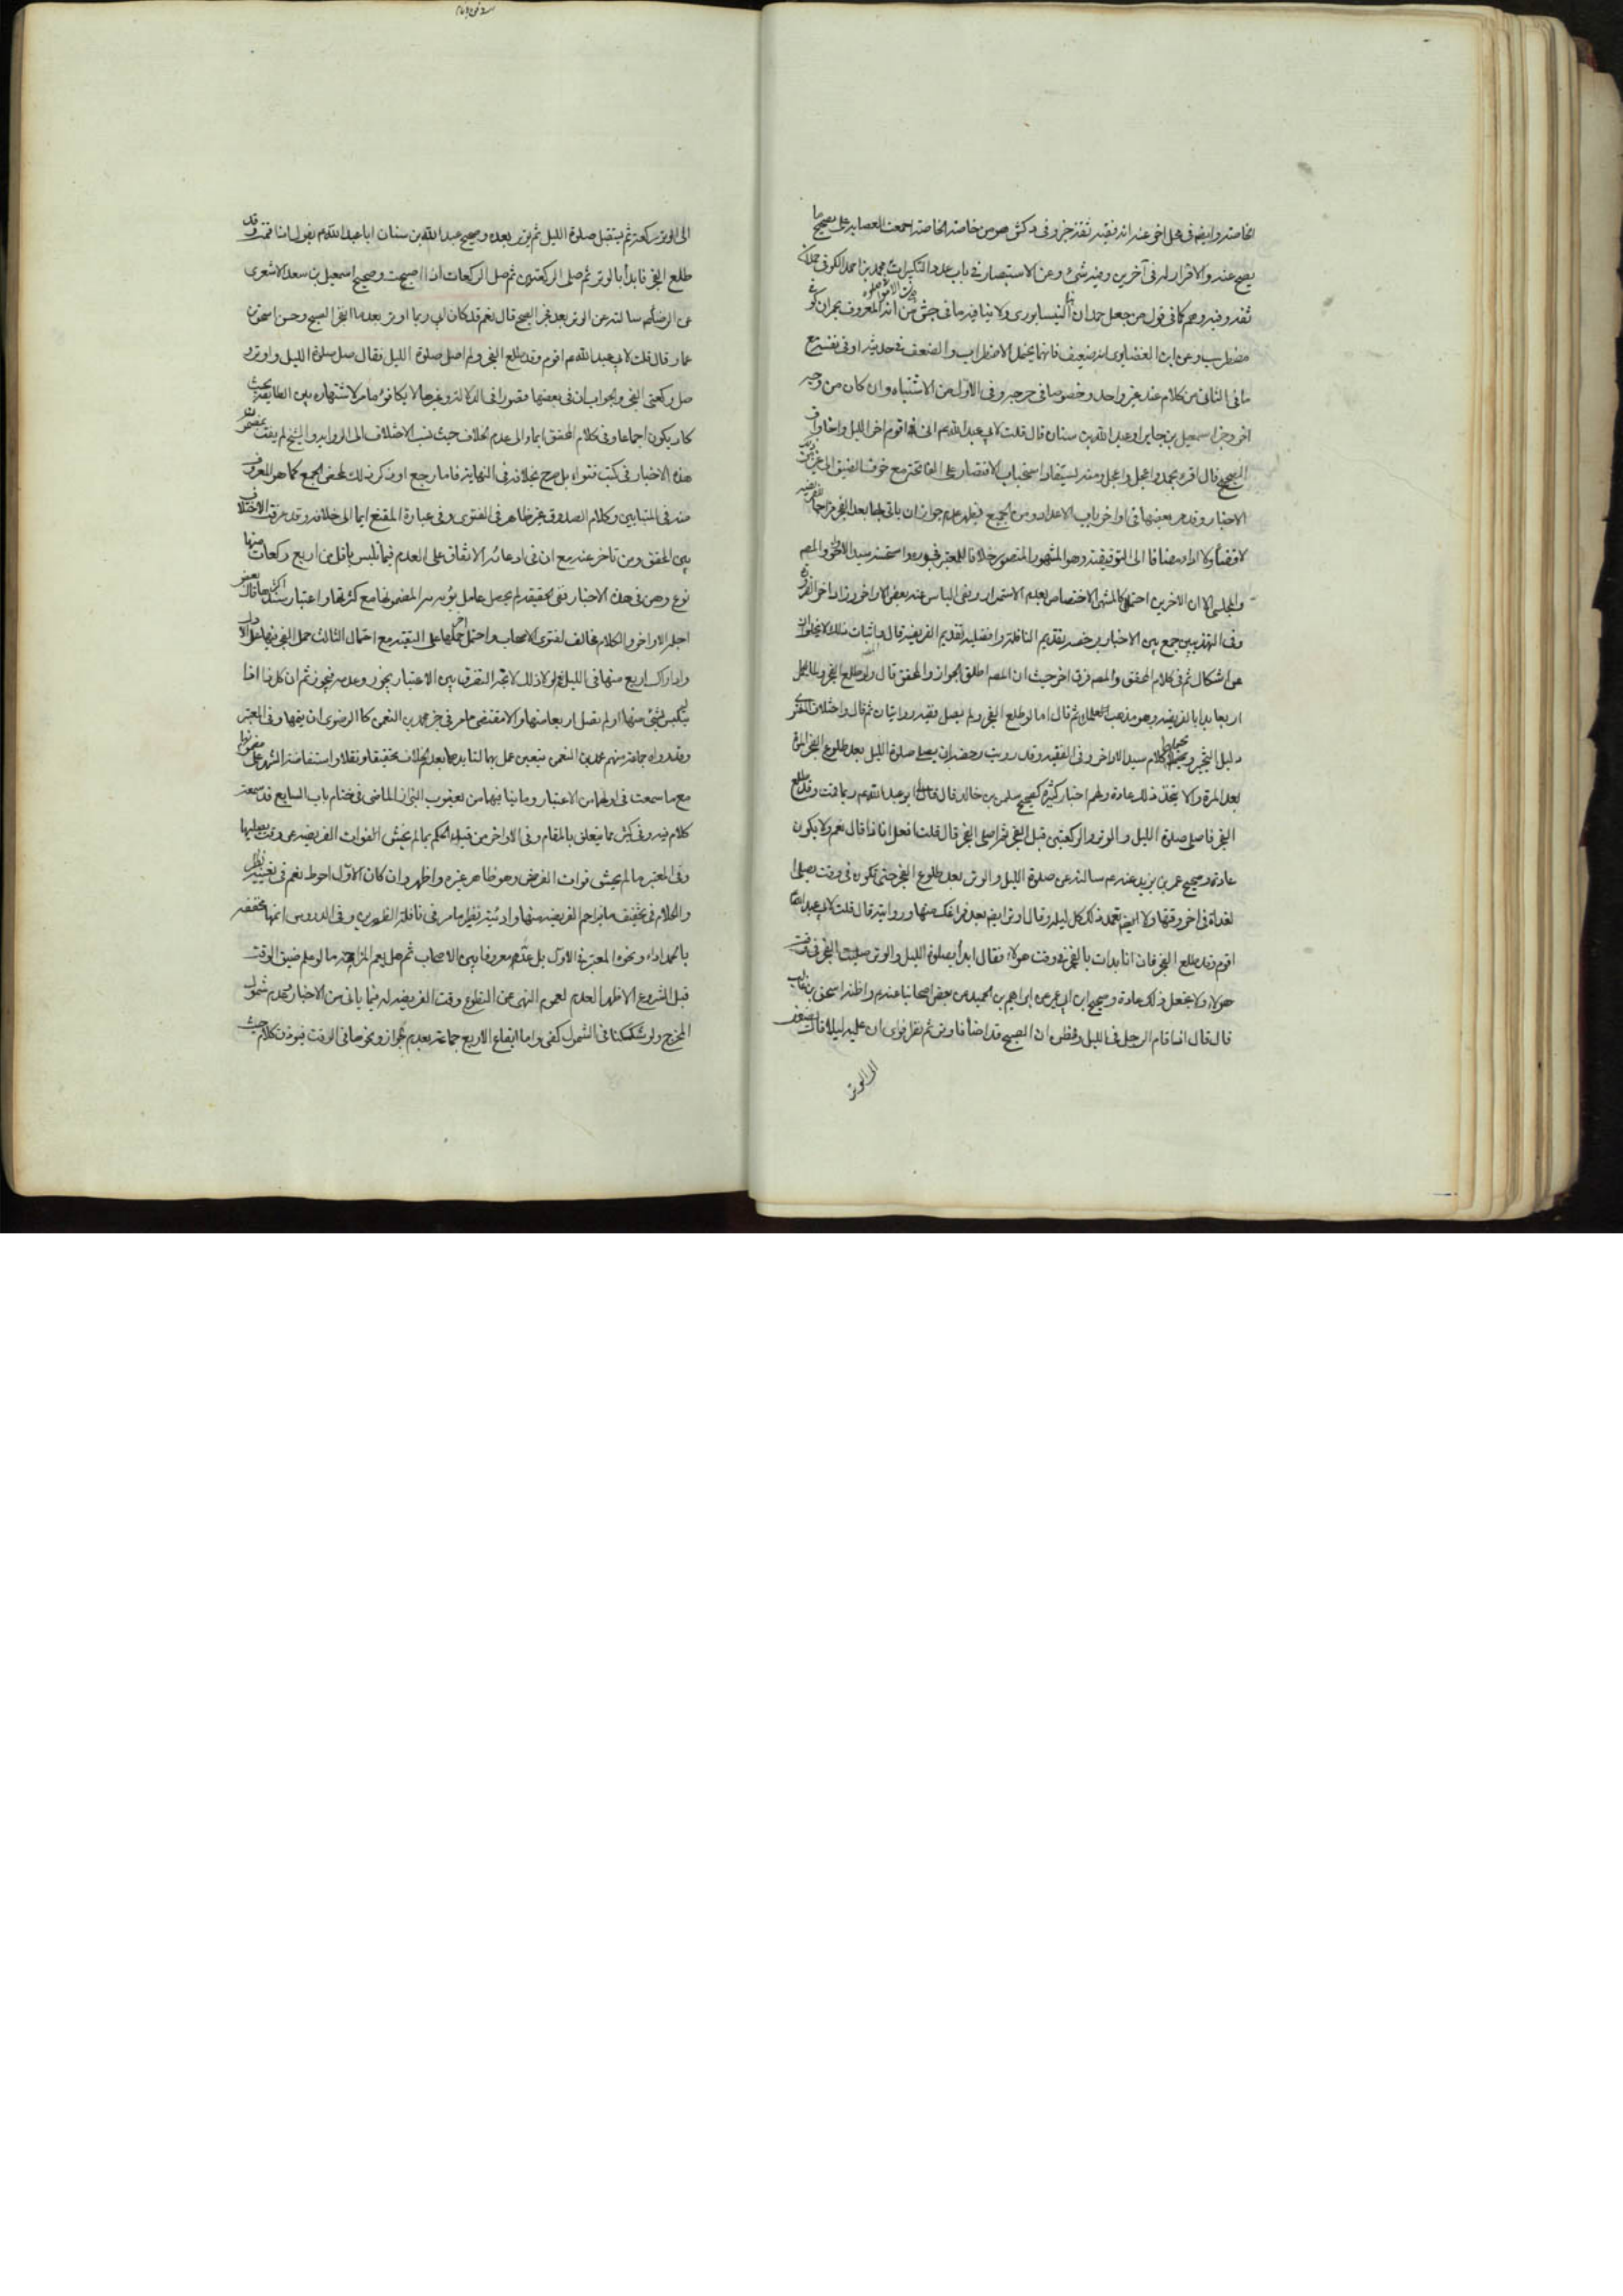 الخاصة وايضا في محل اخر عنه انه فقيه ثقة وفي كش هو من خاصة الخاصة اجمعت العصابة على تصحيح ما
يصح عنه والاقرار له في آخرين وفيه شئ وعن الاستبصار في باب عدد التكبيرات محمد بن احمد الكوفى
ثقة وفيه وهم كما في قول من جعل حمدان النيسابورى ولا ينافيه ما في جش من انه المعروف بحمران كوفى
مضطرب وعن ابن الغضايرى انه ضعيف فانهما يحتمل الاضطراب والضعف في حديثه او في نفسه مع
ما في الثانى من كلام عند غير واحد وخصوصا في جرحه وفي الاول من الاشتباه وان كان من وجه
اخر وخبر اسمعيل بن جابر او عبد الله بن سنان قال قلت لابي عبد الله ع انى اقوم اخر الليل واخاف
الصبح قال اقرء الحمد واعجل واعجل ومنه يستفاد استحباب الاقتصار على الفاتحة مع خوف الضيق
الاخبار وقد مر بعضها في اواخر باب الاعداد ومن الجميع فيظهر عدم جواز ان ياتى بها بعد الفجر مزاحما
لا قضاء ولا اداء مضافا الى التوقيفية وهو المشهور المنصور خلافا للمعتبر فجوزه واستحسنه سيد الاواخر والمص
والمجلسى الا ان الاخرين احتملا كالمنتهى الاختصاص بعدم الاستمرار ونفى الباس عنه بعض الاواخر وزاد اخر الفرق
وفي التهذيبين جمع بين الاخبار برخصه تقديم النافلة وافضلية تقديم الفريضة قال واثبات ذلك لا يخلو
عن اشكال ثم في كلام المحقق والمص فرق اخر حيث ان المص اطلق الجواز والمحقق قال ولو طلع الفجر ولما يكمل
اربعا بدا بالفريضة وهو مذهب علمائنا ثم قال اما لو طلع الفجر ولم يصل ففيه روايتان ثم قال واختلاف الفتوى
دليل التخيير كلام سيد الاواخر وفي الفقيه وقد رويت رخصة ان يصلى صلوة الليل بعد طلوع الفجر المرة
بعد المرة ولا يتخذ ذلك عادة ولهم اخبار كثيرة كصحيح سليمن بن خالد قال قال لى ابو عبد الله ع ربما قمت وقد طلع
الفجر فاصلى صلوة الليل والوتر والركعتين قبل الفجر ثم اصلى الفجر قال قلت افعل انا ذا قال نعم ولا يكون
عادة وصحيح عمر بن يزيد عنه ع سالته عن صلوة الليل والوتر بعد طلوع الفجر حتى تكون في وقت يصلى
لغداة في اخر وقتها ولا تعمد ذلك كل ليلة وقال اوتر ايضا بعد فراغك منها وروايته قال قلت لابي عبد الله
اقوم وقد طلع الفجر فان انا بدات بالفجر في وقت هولاء فقال ابدأ بصلوة الليل والوتر الفجر في وقت
هولاء ولا تجعل ذلك عادة وصحيح ابن ابي عمير عن ابراهيم بن عبد الحميد عن بعض اصحابنا عنه ع واظنه اسحق بن غالب
قال قال اذا قام الرجل في الليل فظن ان الصبح قد اضاء فاوتر ثم نظر فراى ان عليه ليلا قال يضيف
الى الوتر
الى الوتر ركعة ثم يستقبل صلوة الليل ثم يوتر بعده وصحيح عبد الله بن سنان ابا عبد الله ع يقول اذا قمت وقد
طلع الفجر فابدأ بالوتر ثم صل الركعتين ثم صل الركعات اذا اصبحت وصحيح اسمعيل بن سعد الاشعرى
عن الرضا ع سالته عن الوتر بعد فجر الصبح قال نعم قد كان ابي ربما اوتر بعد ما انفجر الصبح وحسن اسحق بن
عمار قال قلت لابي عبد الله ع اقوم وقد طلع الفجر ولم اصل صلوة الليل فقال صل صلوة الليل واوتر و
صل ركعتى الفجر والجواب ان في بعضها قصورا في الدلالة وغيرها لا يكافؤ ما مر لاشتهاره بين الطايفة بحيث
كاد يكون اجماعا وفي كلام المحقق ايماء الى عدم الخلاف حيث نسب الاختلاف الى الرواية والشيخ لم يفت بمضمون
هذه الاخبار في كتب فتواه بل صرح بخلافه في النهاية فاما رجع او ذكر ذلك لمحض الجمع كما هو المعروف
منه في المتباينين وكلام الصدوق غير ظاهر في الفتوى وفي عبارة المقنع ايما الى خلافه وقد عرفت الاختلاف
بين المحقق ومن تاخر عنه مع ان في ادعائه الاتفاق على العدم فيما تلبس باقل من اربع ركعات منها
نوع وهن في هذه الاخبار ففى الحقيقة لم يحصل عامل بؤسه سر المضمونها مع كثرتها واعتبار سند اكثرها قال بعض
اجلة الاواخر والكلام مخالف لفتوى الاصحاب واحتمل اخر حملها على التقية مع احتمال الثالث حمل الفجر فيها على الاول
وادراك اربع منها في الليل ولولا ذلك لا يتجه التفرقة بين الاعتبار يجوز وعدمه فيجوز ثم ان كل ذا اذا
لم يتلبس بشئ منها او لم تصل اربعا منها والا فمقتضى ما مر في خبر محمد بن النعمن كالرضوى ان يتمها وفي المعتبر
وقد رواه جماعة منهم محمد بن النعمن فتعين عمل بهما لتايدهما بعد الخلاف تحقيقا ونقلا واستفاضة الشهرة على مضمونهما
مع ما سمعت في اولهما من الاعتبار وما نيا فيهما من يعقوب البزاز الماضى في ختام باب السابع قد سمعت
كلام فيه وفي كش مما يتعلق بالمقام وفي الاواخر من قيده الحكم بما لم يخش الفوات الفريضة عن وقت فضيلتها
وفي المعتبر ما لم يخش فوات الفرض وهو ظاهر غيره واظهر وان كان الاول احوط نعم في تغييره نظر
والكلام في تخفيف ما يزاحم الفريضة منها وادائيته نظير ما مر في نافلة الظهرين وفي الدروس اتمها مخففة
بالحمد اداء ونحوه المعتبر في الاول بل عده معروفا بين الاصحاب ثم هل يعم المزاحمة ما لو علم ضيق الوقت
قبل الشروع الاظهر العدم لعموم النهى عن التطوع وقت الفريضة له فيما ياتى من الاخبار وعدم شمول
المخرج ولو شككنا في الشمول كفى واما ايقاع الاربع جماعة بعدم جواز ونحوها في الوقت فيؤذن كلام حيث